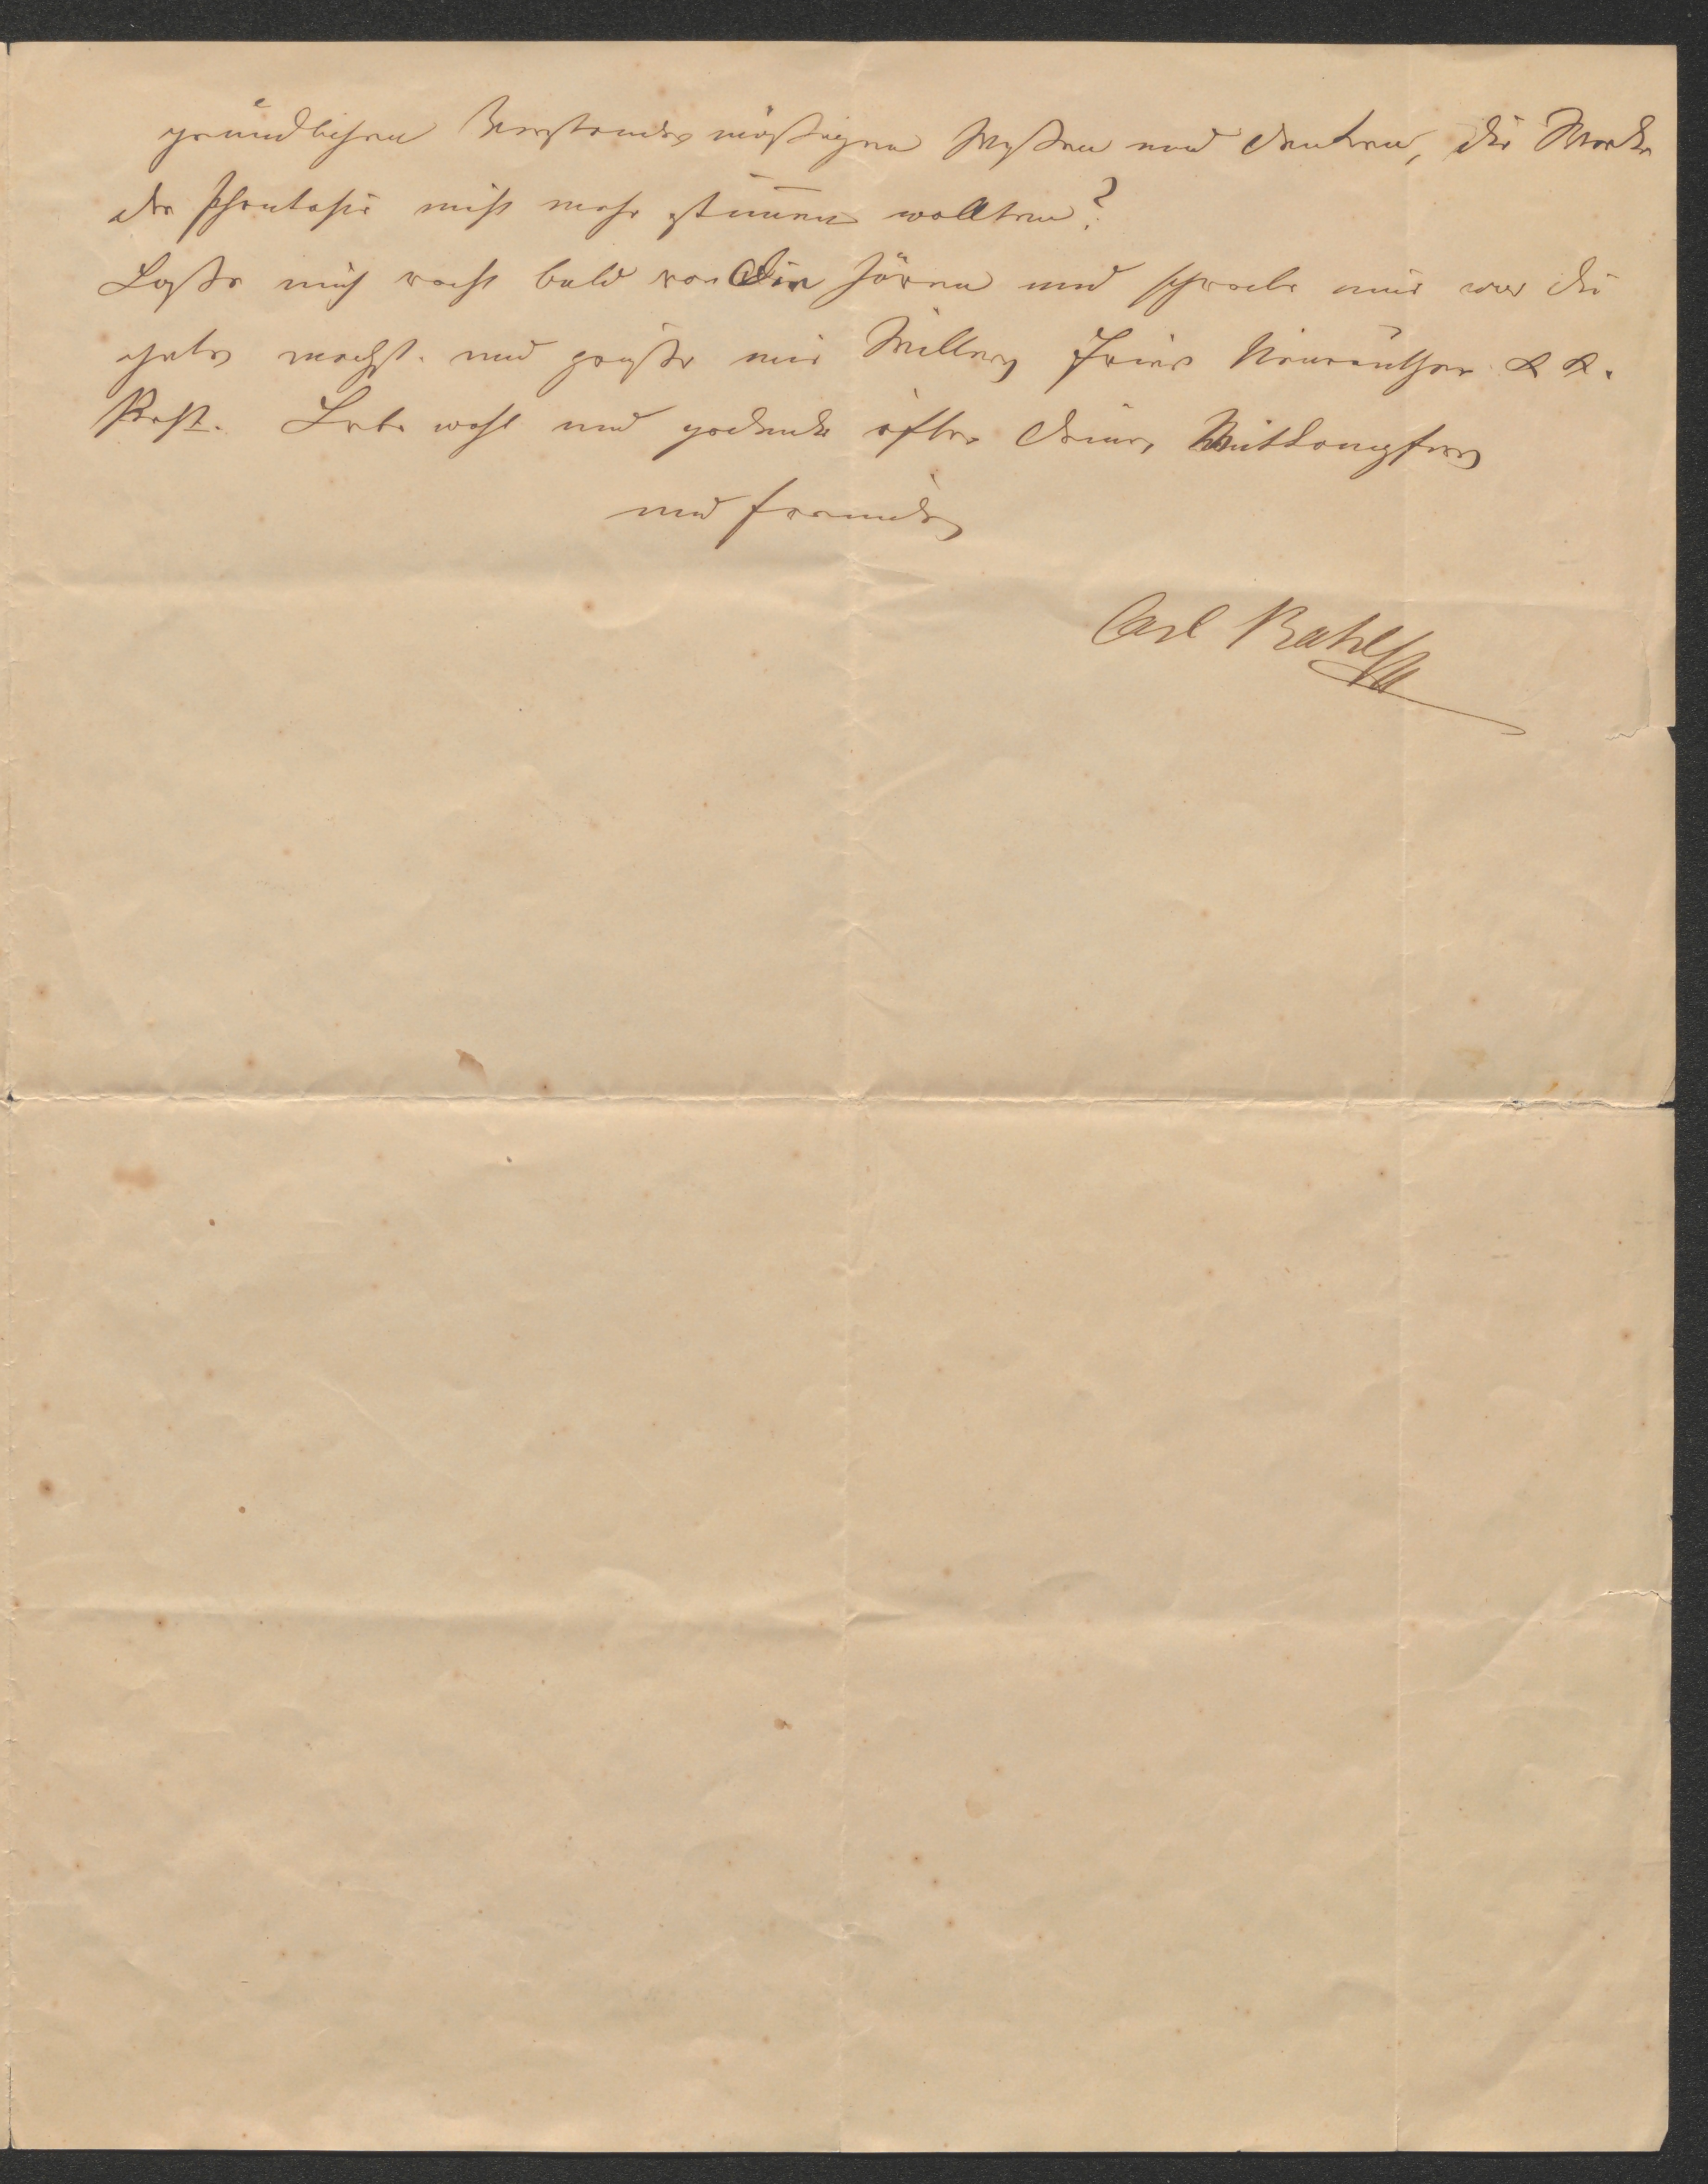 gründlichen Verstandes mäßigen Wißen und denken, die Werke
der Phantasie nicht mehr stim̅en wollten?
Laße mich recht bald von Dir hören und schreibe mir was du
gutes machst. und grüße mir Willers Fries Neureuther & &.
Lebe wohl und gedenke öfter deines Mitkämpfers
und Freundes
Carl Rahl